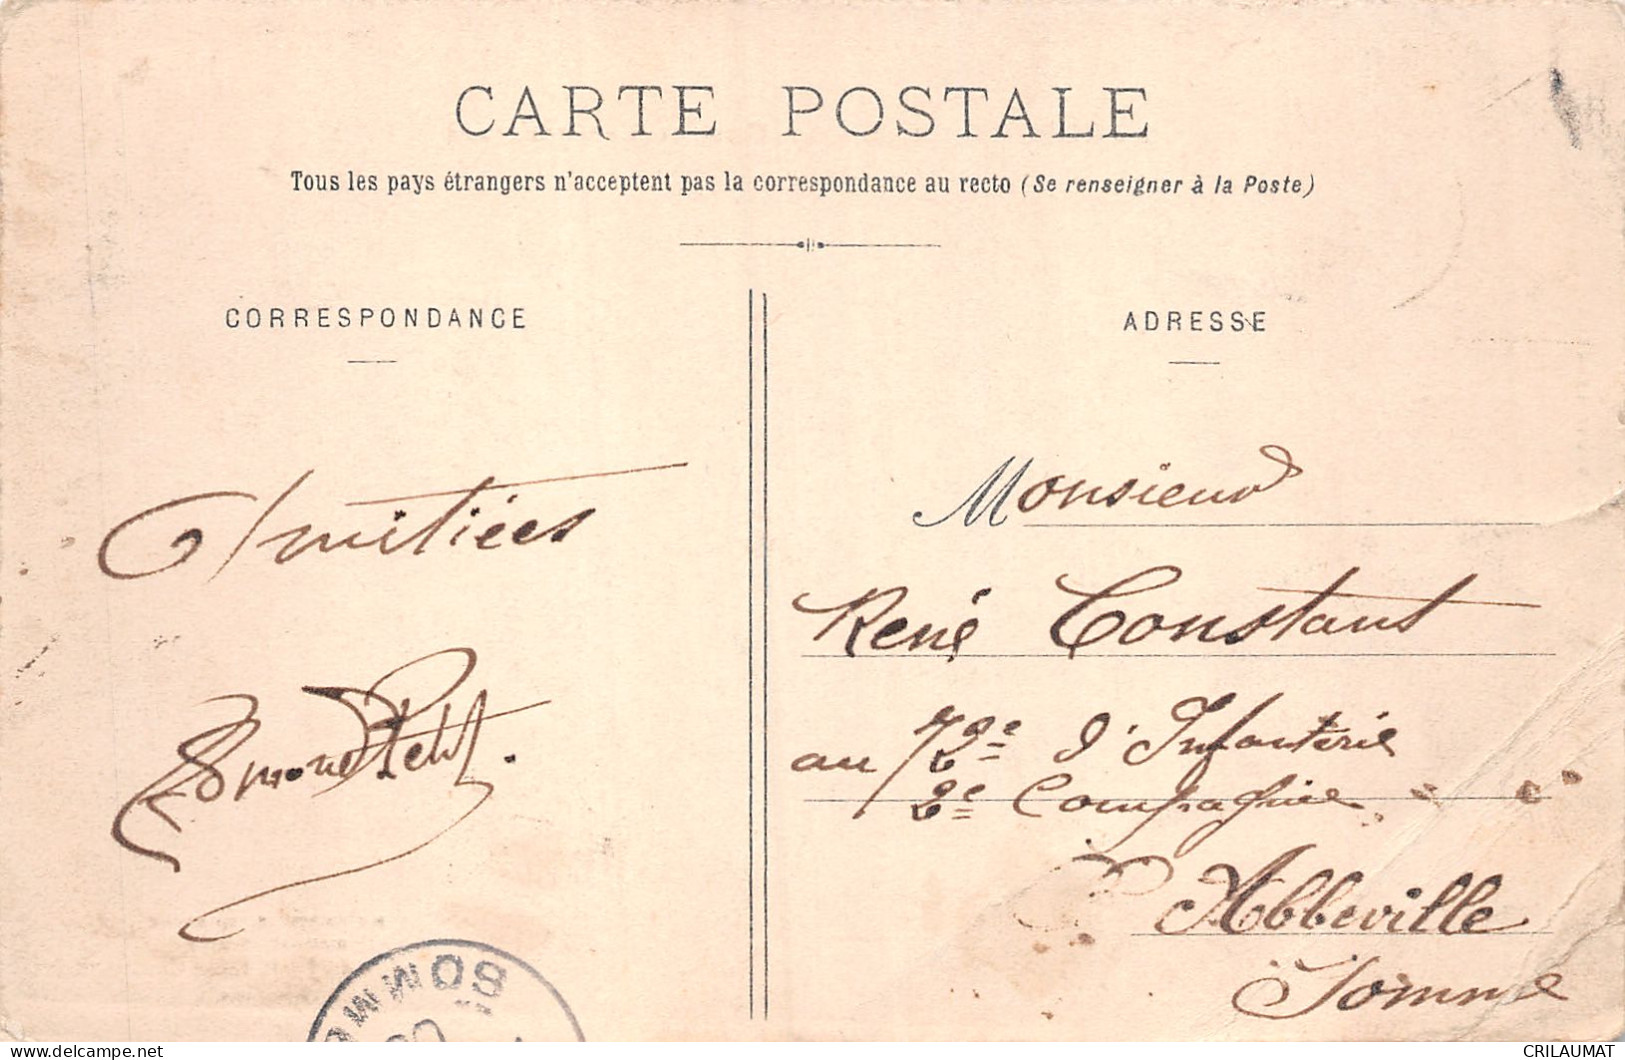 CARTE POSTALE
Tous les pays étrangers n'acceptent pas la correspondance au recto (Se renseigner à la Poste)
CORRESPONDANCE
ADRESSE
Amitiées
Monsieur
René Constant
au 72e d'Infanterie
2e Compagnie
Abbeville
Somme
SOMME
delcampe.net
CRILAUMAT